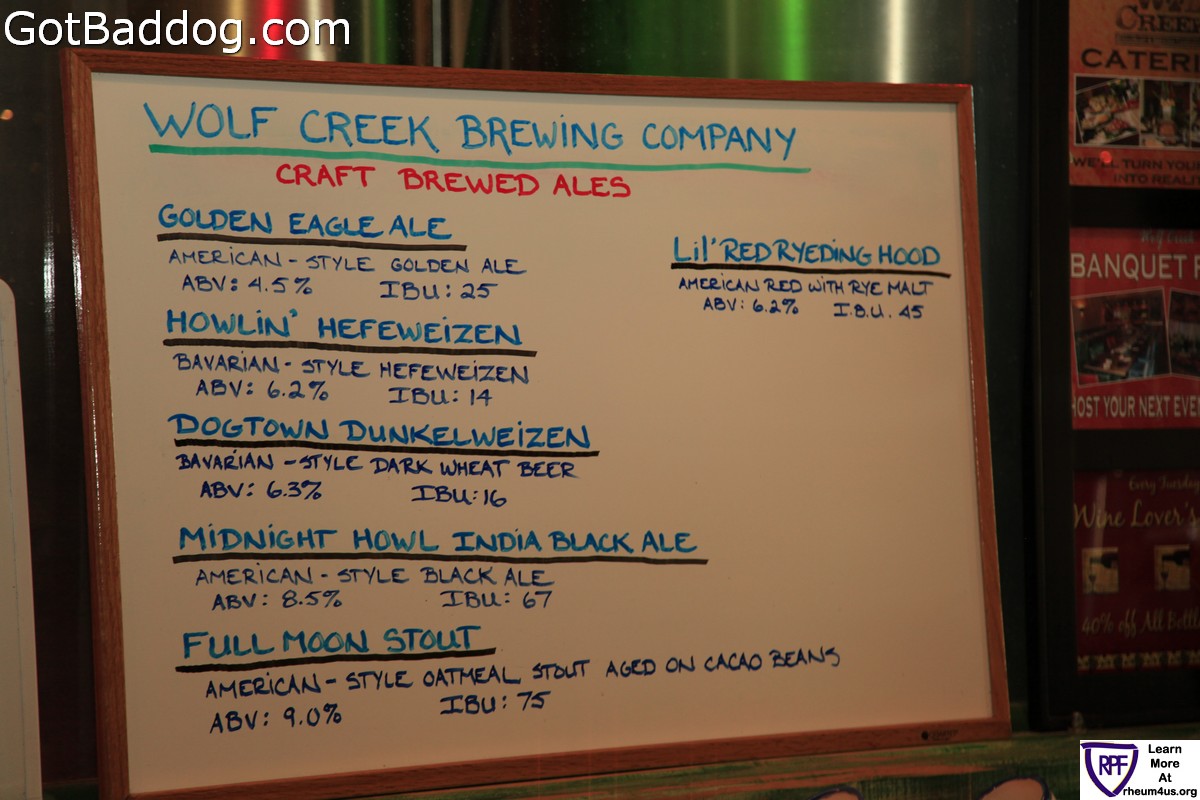 GotBaddog.com
WOLF CREEK BREWING COMPANY
CRAFT BREWED ALES
GOLDEN EAGLE ALE
AMERICAN - STYLE GOLDEN ALE
ABV: 4.5% IBU: 25
HOWLIN' HEFEWEIZEN
BAVARIAN - STYLE HEFEWEIZEN
ABV: 6.2% IBU: 14
DOGTOWN DUNKELWEIZEN
BAVARIAN - STYLE DARK WHEAT BEER
ABV: 6.3% IBU: 16
MIDNIGHT HOWL INDIA BLACK ALE
AMERICAN - STYLE BLACK ALE
ABV: 8.5% IBU: 67
FULL MOON STOUT
AMERICAN - STYLE OATMEAL STOUT AGED ON CACAO BEANS
ABV: 9.0% IBU: 75
LiL' RED RYEDING HOOD
AMERICAN RED WITH RYE MALT
ABV: 6.2% I.B.U. 45
CREE
CATERI
WE'LL TURN YOU
INTO REALI
BANQUET
HOST YOUR NEXT EVE
Every Tuesday
Wine Lover's
40% off All Bottl
RPF
Learn
More
At
rheum4us.org